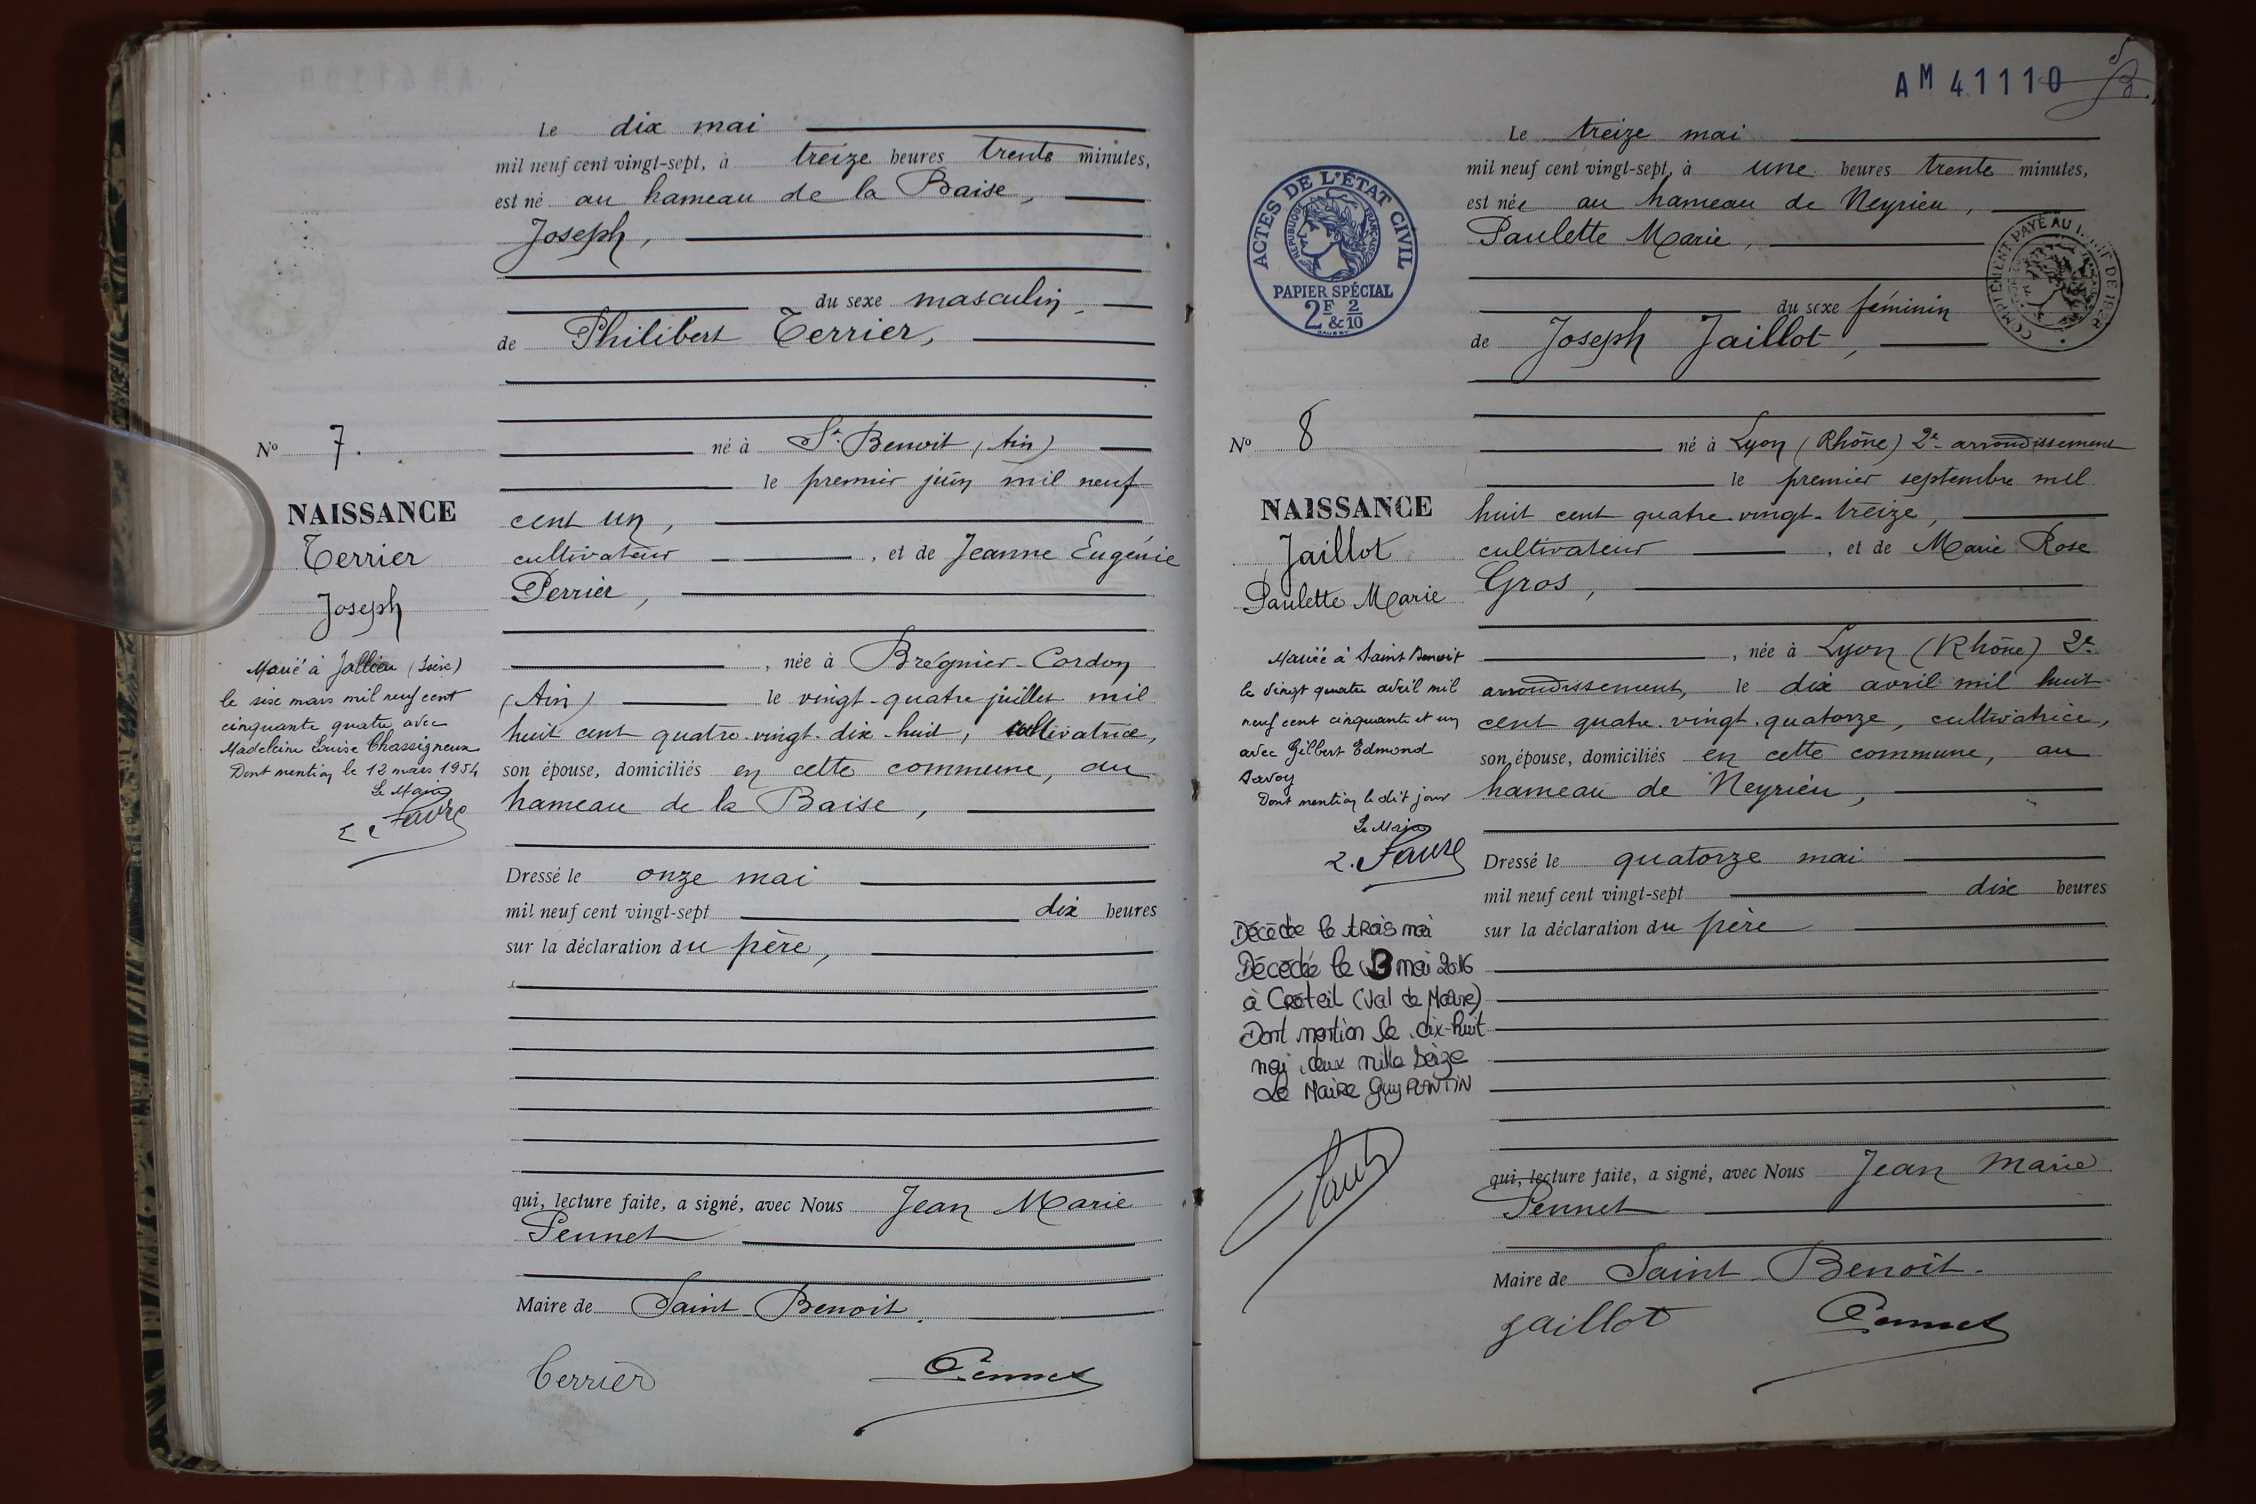 Le dix mai
mil neuf cent vingt-sept, à treize heures trente minutes,
est né au hameau de la Baise,
Joseph,
du sexe masculin,
de Philibert Terrier,
né à St. Benoit (Ain)
le premier juin mil neuf
cent un,
cultivateur, et de Jeanne Eugénie
Perrier,
, née à Brégnier-Cordon
(Ain) le vingt-quatre juillet mil
huit cent quatre-vingt-dix-huit, cultivatrice,
son épouse, domiciliés en cette commune, au
hameau de la Baise,
Dressé le onze mai
mil neuf cent vingt-sept dix heures
sur la déclaration du père,
qui, lecture faite, a signé, avec Nous Jean Marie
Pennet
Maire de Saint-Benoit.
Terrier Pennet
No 7.
NAISSANCE
Terrier
Joseph
Marié à Jallieu (Isère)
le six mars mil neuf cent
cinquante quatre avec
Madeleine Louise Chassigneux
Dont mention le 12 mars 1954
Le Maire
L. Favre
AM 41110
5
Le treize mai
mil neuf cent vingt-sept, à une heures trente minutes,
est née au hameau de Neyrieu,
Paulette Marie,
du sexe féminin
de Joseph Jaillot,
né à Lyon (Rhône) 2e arrondissement
le premier septembre mil
huit cent quatre-vingt-treize,
cultivateur, et de Marie Rose
Gros,
, née à Lyon (Rhône) 2e
arrondissement, le dix avril mil huit
cent quatre-vingt-quatorze, cultivatrice,
son épouse, domiciliés en cette commune, au
hameau de Neyrieu,
Dressé le quatorze mai
mil neuf cent vingt-sept dix heures
sur la déclaration du père
qui, lecture faite, a signé, avec Nous Jean Marie
Pennet
Maire de Saint-Benoît.
Jaillot Pennet
ACTES DE L'ÉTAT CIVIL
RÉPUBLIQUE FRANÇAISE
PAPIER SPÉCIAL
2F & 2/10
No 8
NAISSANCE
Jaillot
Paulette Marie
Mariée à Saint Benoit
le vingt quatre avril mil
neuf cent cinquante et un
avec Gilbert Edmond
Savoy
Dont mention le dit jour
Le Maire
L. Favre
Décédée le trois mai
Décédée le 3 mai 2016
à Créteil (Val de Marne)
Dont mention le dix-huit
mai deux mille seize
Le Maire Guy PLANTIN